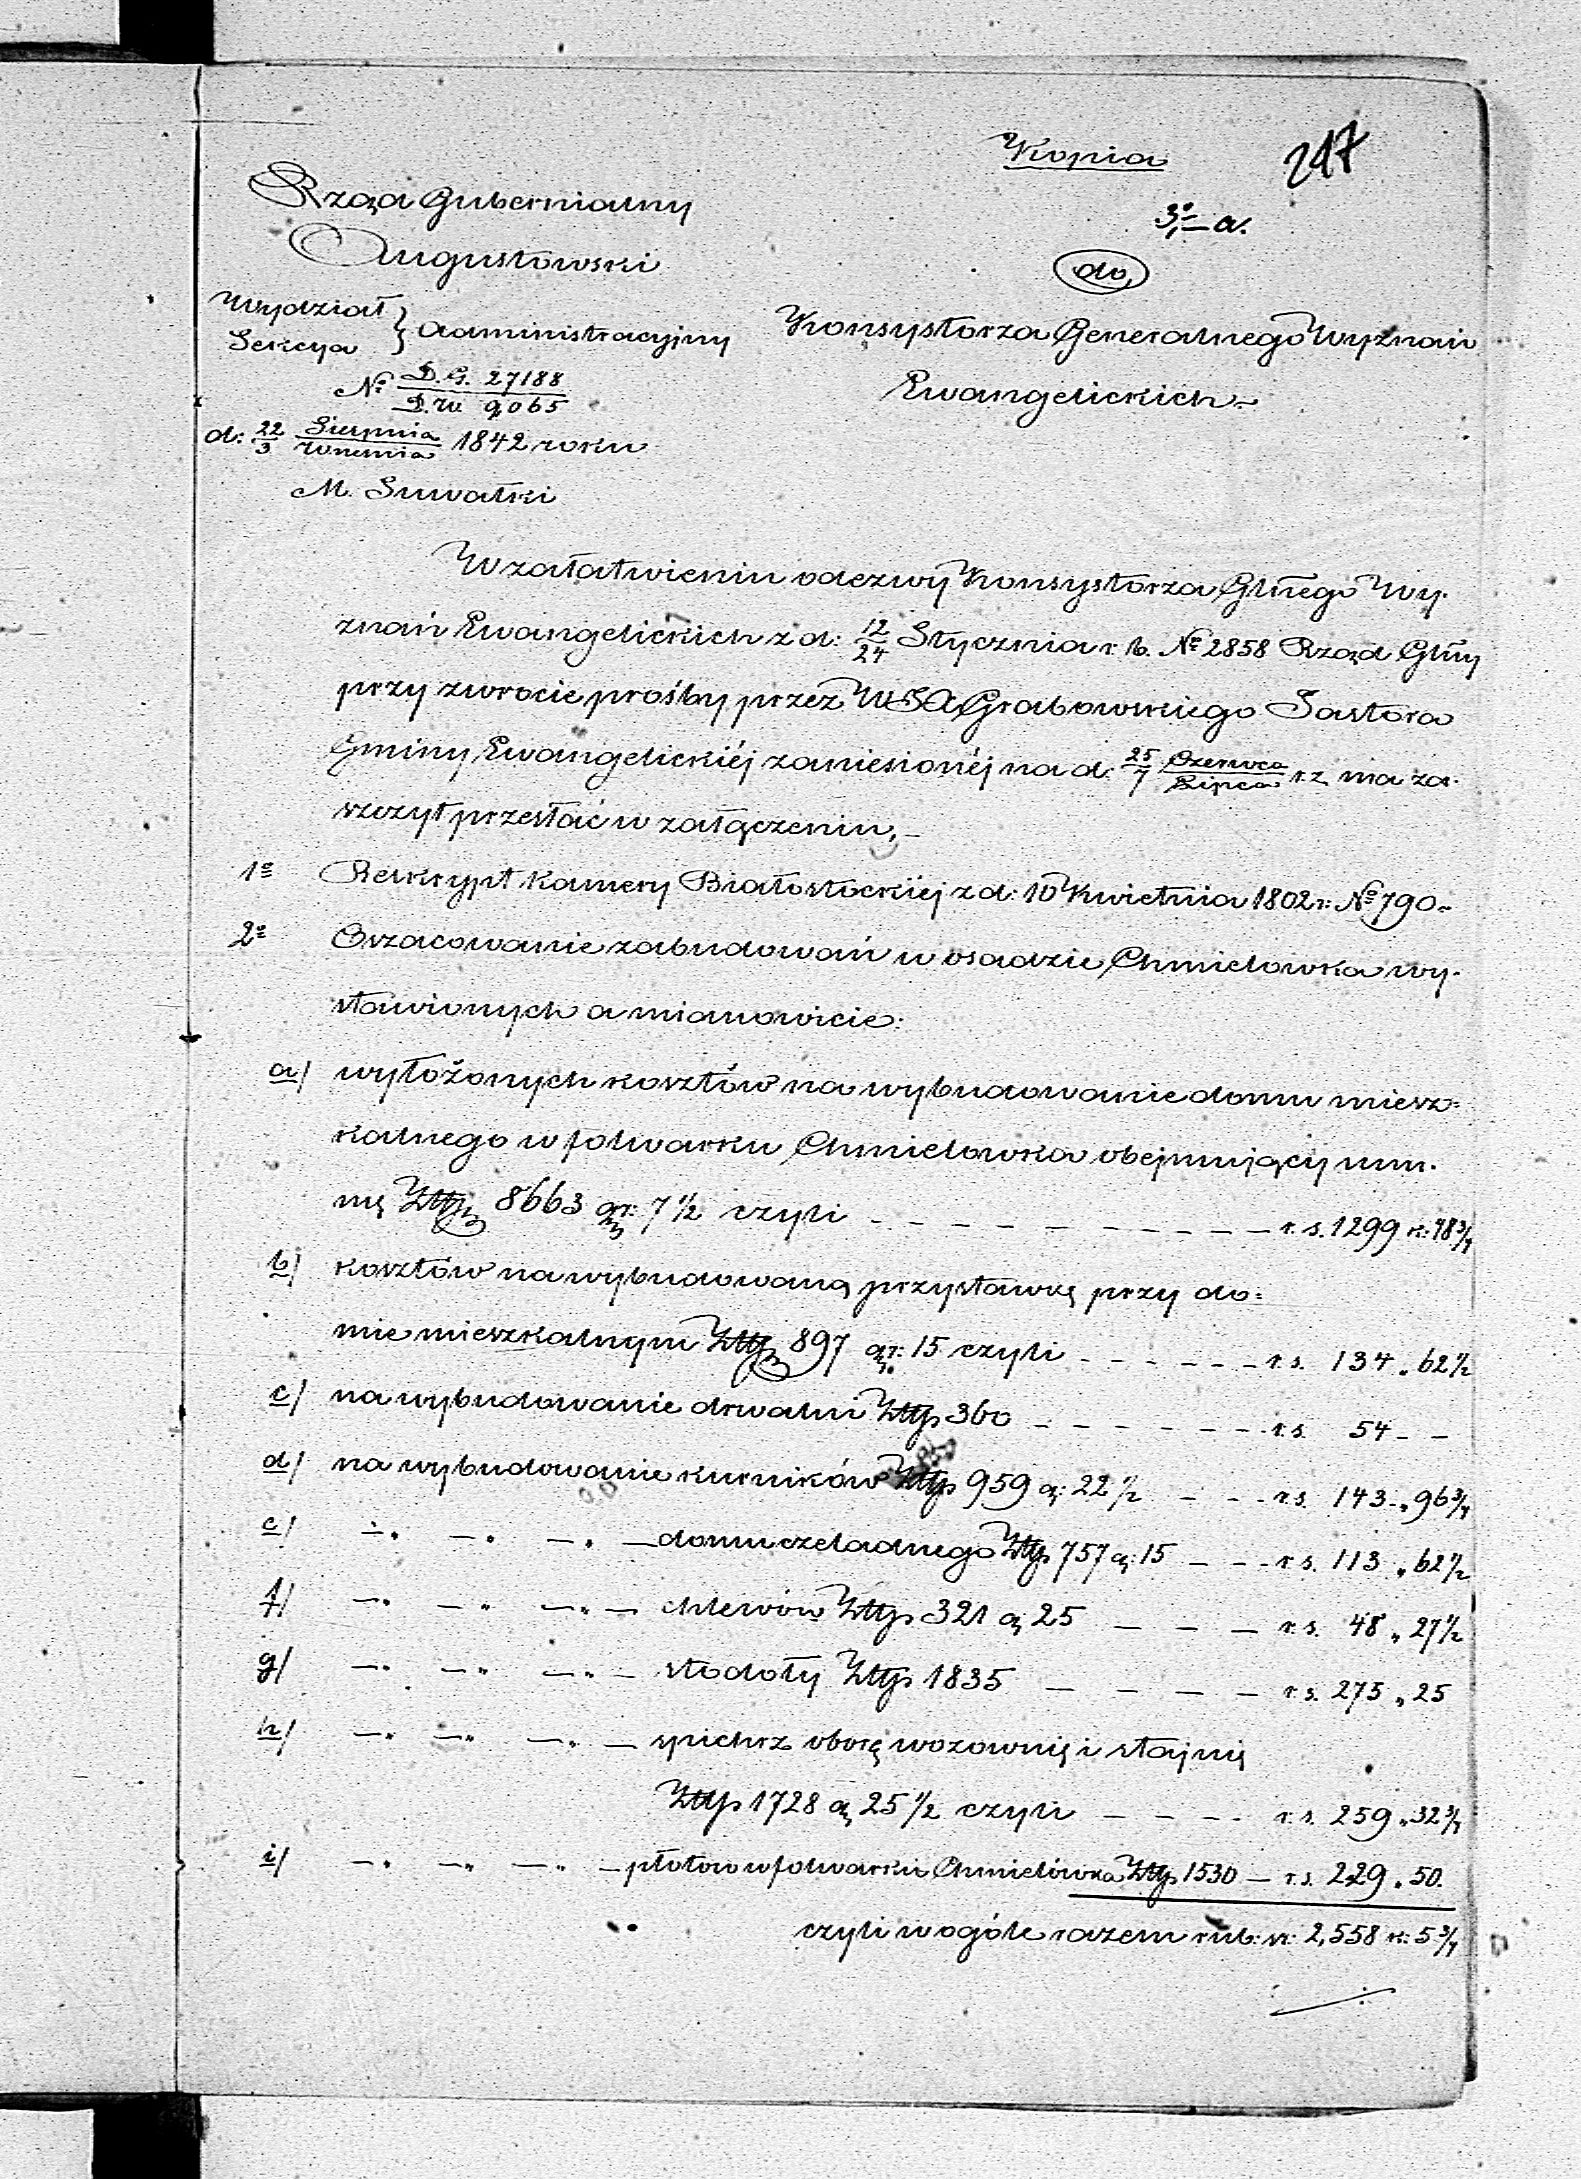 Kopia
247
Rząd Gubernialny
3o — a.
Augustowski
do
Wydział
Sekcya } Administracyjny
Konsystorza Generalnego Wyznań
No D.G. 27188 / D.W. 9065
Ewangelickich.-
d: 22/3 Sierpnia/Września 1842 roku
M. Suwałki
W załatwieniu odezwy Konsystorza Glnego Wy-
znań Ewangelickich z d: 12/24 Stycznia r. b. No 2858 Rząd Glny
przy zwrocie prośby przez Grabowskiego Pastora
Gminy Ewangelickiéj zaniesionéj na d. 25/7 Czerwca/Lipca r. z. ma za-
szczyt przesłać w załączeniu,-
1o Reskrypt Kamery Białostockiéj z d: 10 Kwietnia 1802 r: No 790.-
2o Oszacowanie zabudowań w osadzie Chmielowka wy-
stawionych a mianowicie:
a/ wyłożonych kosztów na wybudowanie domu miesz-
kalnego w folwarku Chmielowka obejmujący sum-
mę Złtp 8663 gr: 7 1/2 czyli — — — r. s. 1299 k: 48 3/4
b/ kosztów na wybudowaną przystawkę przy do-
mie mieszkalnym Złtp 897 gr: 15 czyli — — — r. s. 134 „ 62 1/2
c/ na wybudowanie drwalni Złtp 360 — — — r. s. 54 - -
d/ na wybudowanie kurników Złtp 959 g: 22 1/2 — — r. s. 143 „ 96 3/4
e/ —„ —„ —„ — domu czeladnego Złtp 757 g: 15 — — r. s. 113 „ 62 1/2
f/ —„ —„ —„ — chlewów Złtp 321 g 25 — — — r. s. 48 „ 27 1/2
g/ —„ —„ —„ — stodoły Złtp 1835 — — — — r. s. 275 „ 25
h/ —„ —„ —„ — spichrz oborę wozownię i stajnię
Złtp 1728 g 25 1/2 czyli — — — — r. s. 259 „ 32 3/4
i/ —„ —„ —„ — płotow w folwarku Chmielówka Złtp 1530 — r. s. 229 „ 50.
czyli w ogóle razem rub: sr: 2,558 k: 5 3/4